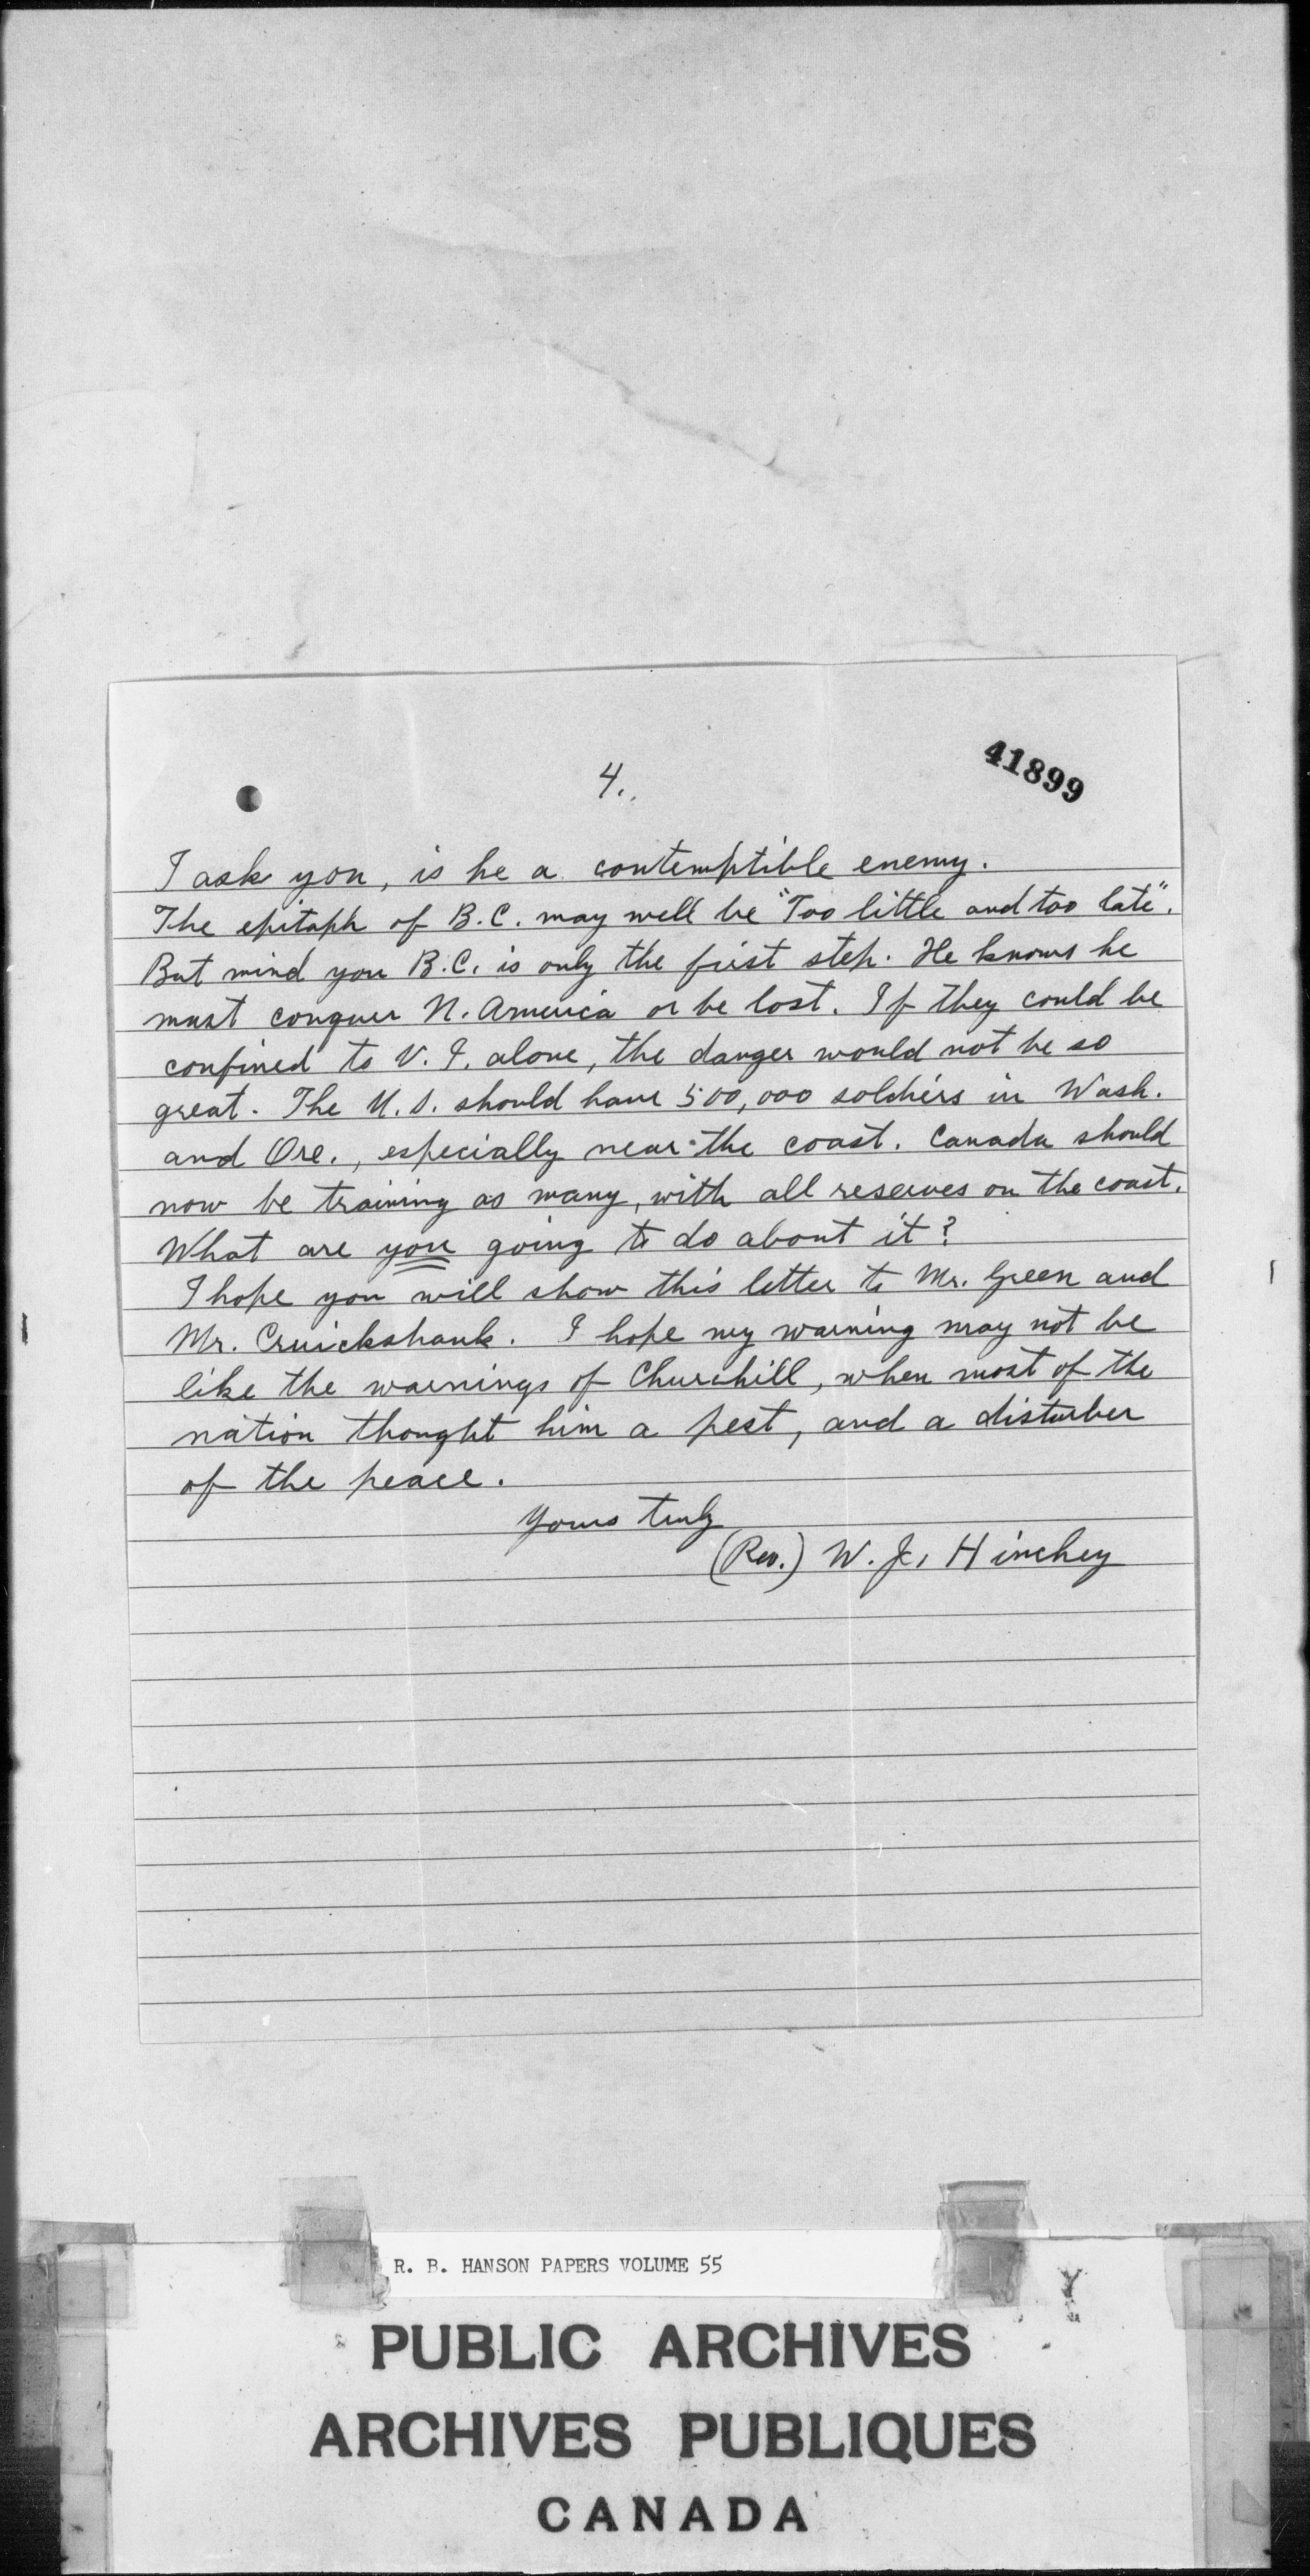 4.
41899
I ask you, is he a contemptible enemy.
The epitaph of B.C. may well be "Too little and too late".
But mind you B.C. is only the first step. He knows he
must conquer N. America or be lost. If they could be
confined to V. I. alone, the danger would not be so
great. The U.S. should have 500,000 soldiers in Wash.
and Ore., especially near the coast. Canada should
now be training as many, with all reserves on the coast.
What are you going to do about it?
I hope you will show this letter to Mr. Green and
Mr. Cruickshank. I hope my warning may not be
like the warnings of Churchill, when most of the
nation thought him a pest, and a disturber
of the peace.
Yours truly
(Rev.) W. J. Hinchey
R. B. HANSON PAPERS VOLUME 55
PUBLIC ARCHIVES
ARCHIVES PUBLIQUES
CANADA